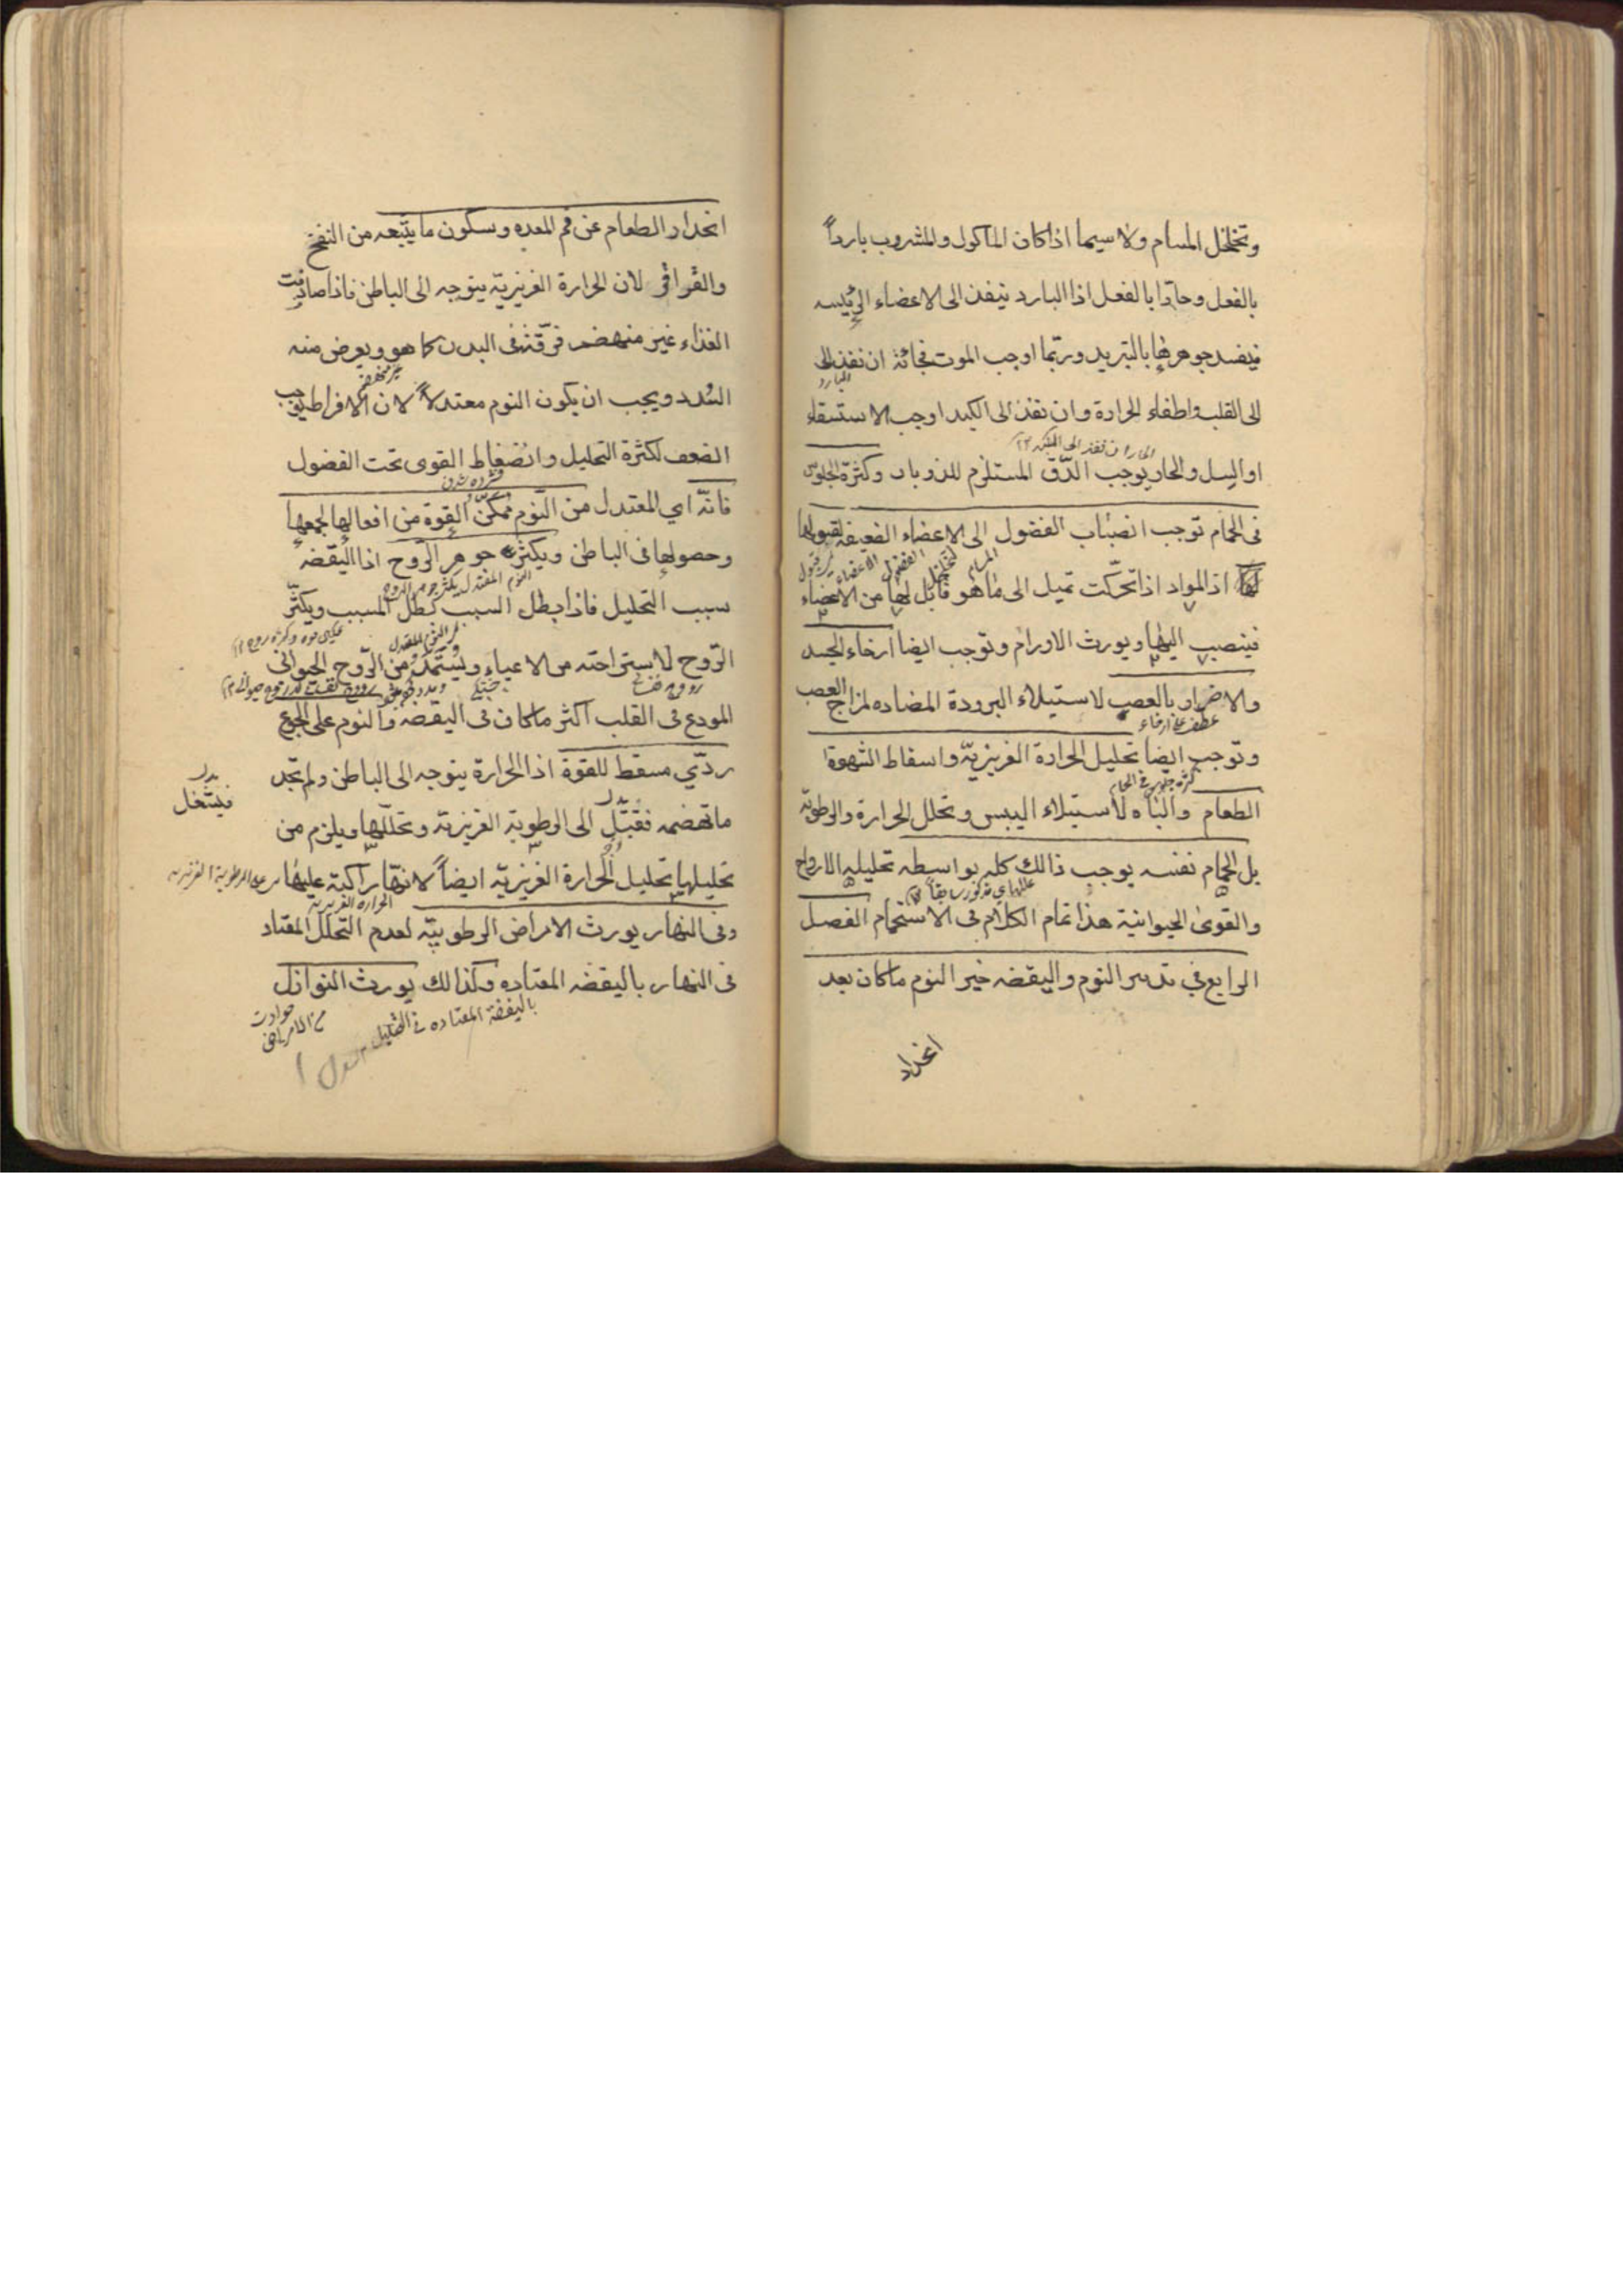 وتخلخل المسام ولا سيما اذا كان الماكول والمشروب بارداً
بالفعل وحارا بالفعل اذا البارد ينفذ الى الاعضاء الرئيسه
فيفسد جوهرها بالتبريد وربّما اوجب الموت فجائة ان نفذ الى
البارد
الى القلب واطفاء الحرارة وان نفذ الى الكبد اوجب الاستسقاء
الحار ان نفذ الى
او السل والحار يوجب الدّق المستلزم للذوبان وكثرة الجلوس
فى الحمّام توجب انصباب الفضول الى الاعضاء الضعيفه لقبولها
الفضول الاعضاء
لها اذ المواد اذا تحرّكت تميل الى ما هو قابل لها من الاعضاء
فينصب اليها ويورث الاورام وتوجب ايضا ارخاء الجسد
والاضرار بالعصب لاستيلاء البرودة المضاده لمزاج العصب
عطف على ارخاء
وتوجب ايضا تحليل الحرارة الغريزيّة واسقاط الشهوة
كثرة جلوس فى الحمام
الطعام والباه لاستيلاء اليبس وتحلل الحرارة والرطوبة
بل الحمّام نفسه يوجب ذالك كله بواسطه تحليله الارواح
والقوى الحيوانية هذا تمام الكلام فى الاستحمام الفصل
الرابع في تدبير النوم واليقضه خير النوم ما كان بعد
انحدار
انحدار الطعام عن فم المعده وسكون ما يتبعه من النفخ
والقراقر لان الحرارة الغريزيّة يتوجه الى الباطن فاذا صادفت
الغذاء غير منهضم فرّقته فى البدن كما هو ويعرض منه
غير منهضم
السُدد ويجب ان يكون النوم معتدلاً لان الافراط يوجب
الضعف لكثرة التحليل وانضغاط القوى تحت الفضول
فانّه اى المعتدل من النّوم ممكّن القوة من افعالها لجمعها
وحصولها فى الباطن ويكثر جوهر الرّوح اذا اليقضه
النوم المعتدل يكثر جوهر الروح
سبب التحليل فاذا بطل السبب بطل المسبب ويكثّر
الرّوح لاستراحته من الاعياء ويستمدّ من الرّوح الحيوانى
المودع فى القلب اكثر ما كان فى اليقضه والنوم على الجوع
ردّي مسقط للقوة اذا الحرارة يتوجه الى الباطن ولم تجد
بدل
فيشتغل
ما تهضمه فقبّل الى الرطوبة الغريزية وتحلّلها ويلزم من
تحليلها تحليل الحرارة الغريزيّة ايضاً لانها راكبة عليها
على الرطوبة الغريزيه
الحرارة الغريزية
وفى النهار يورث الامراض الرطوبيّه لعدم التحلل المعتاد
فى النهار باليقضه المعتاده وكذالك يورث النوازل
باليقضة المعتاده فى التحليل
حوادث
من الامراض